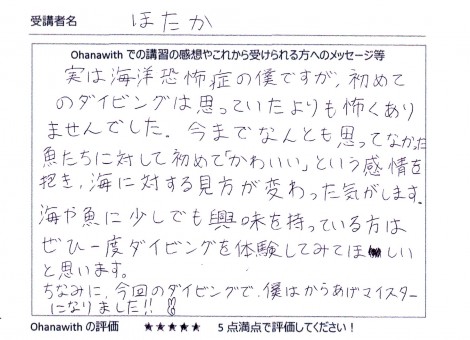 受講者名 ほたか
Ohanawith での講習の感想やこれから受けられる方へのメッセージ等
実は海洋恐怖症の僕ですが、初めて
のダイビングは思っていたよりも怖くあり
ませんでした。今までなんとも思ってなかった
魚たちに対して初めて「かわいい」という感情を
抱き、海に対する見方が変わった気がします。
海や魚に少しでも興味を持っている方は
ぜひ一度ダイビングを体験してみてほしい
と思います。
ちなみに、今回のダイビングで、僕はからあげマイスター
になりました!!
Ohanawith の評価 ★★★★★ 5 点満点で評価してください!